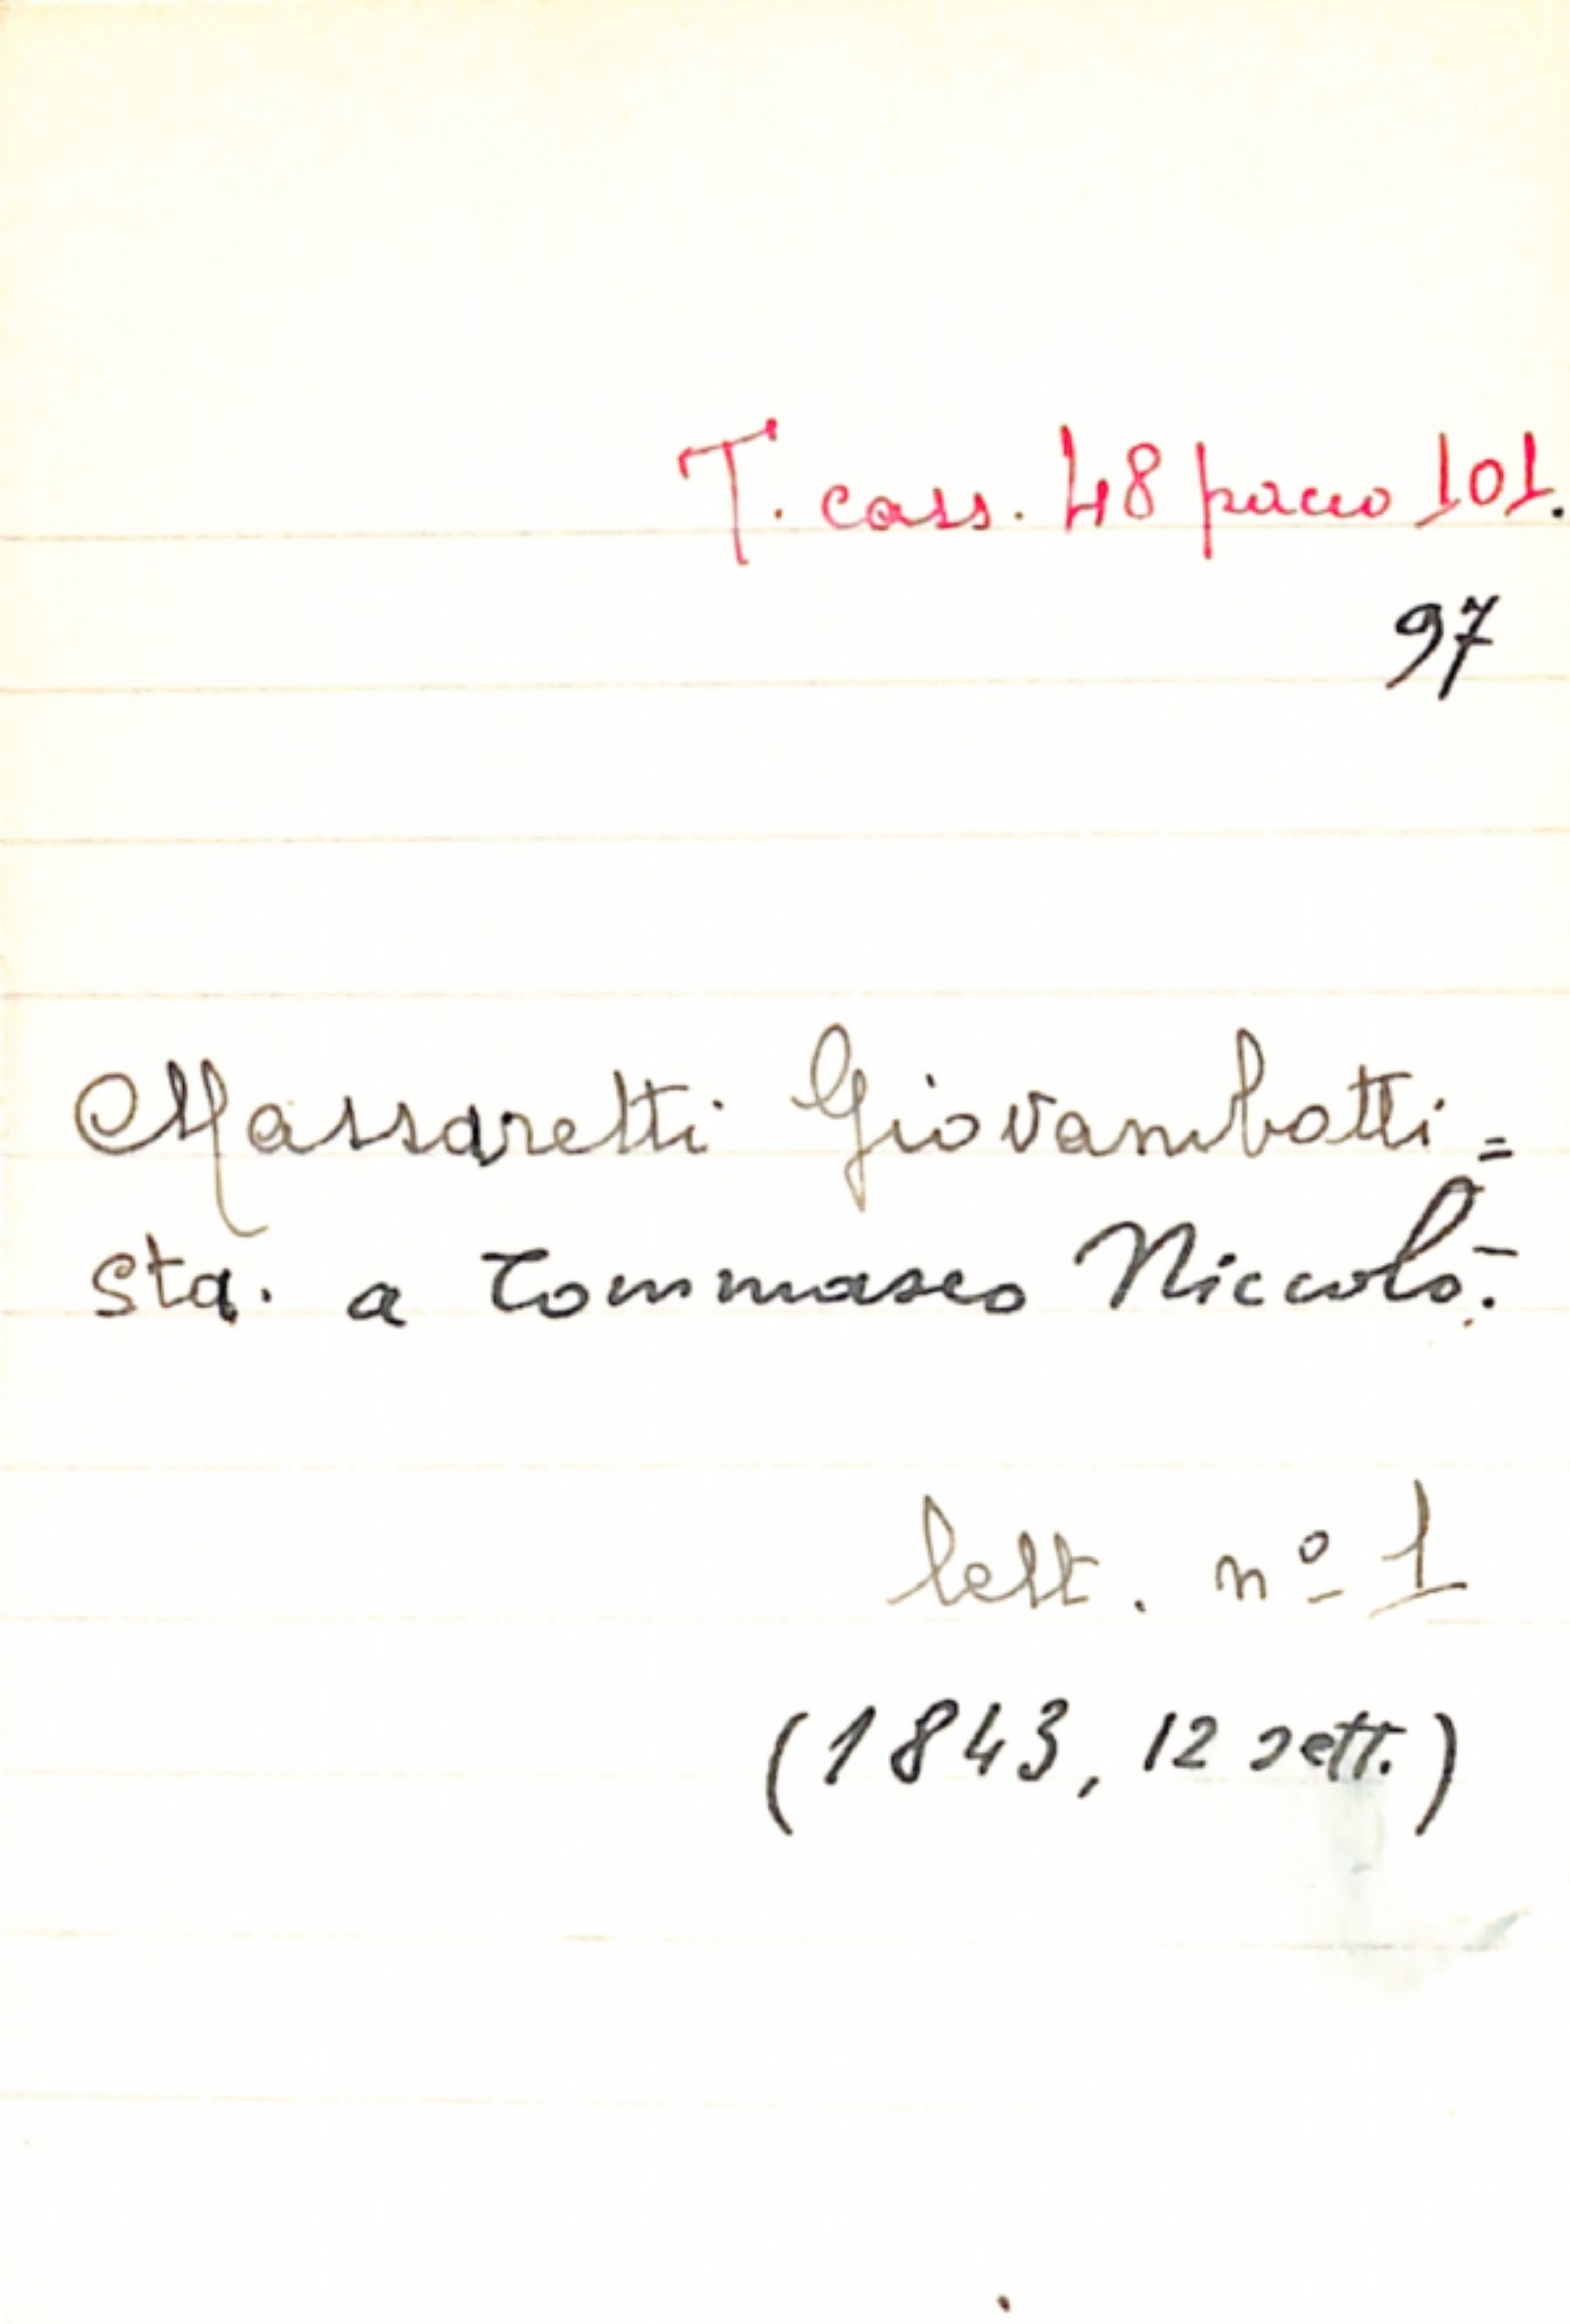 T. cass. 48 pacco 101.
97
Massaretti Giovambatti=
sta. a Tommaseo Niccolò.
lett. nº 1
(1843, 12 sett.)